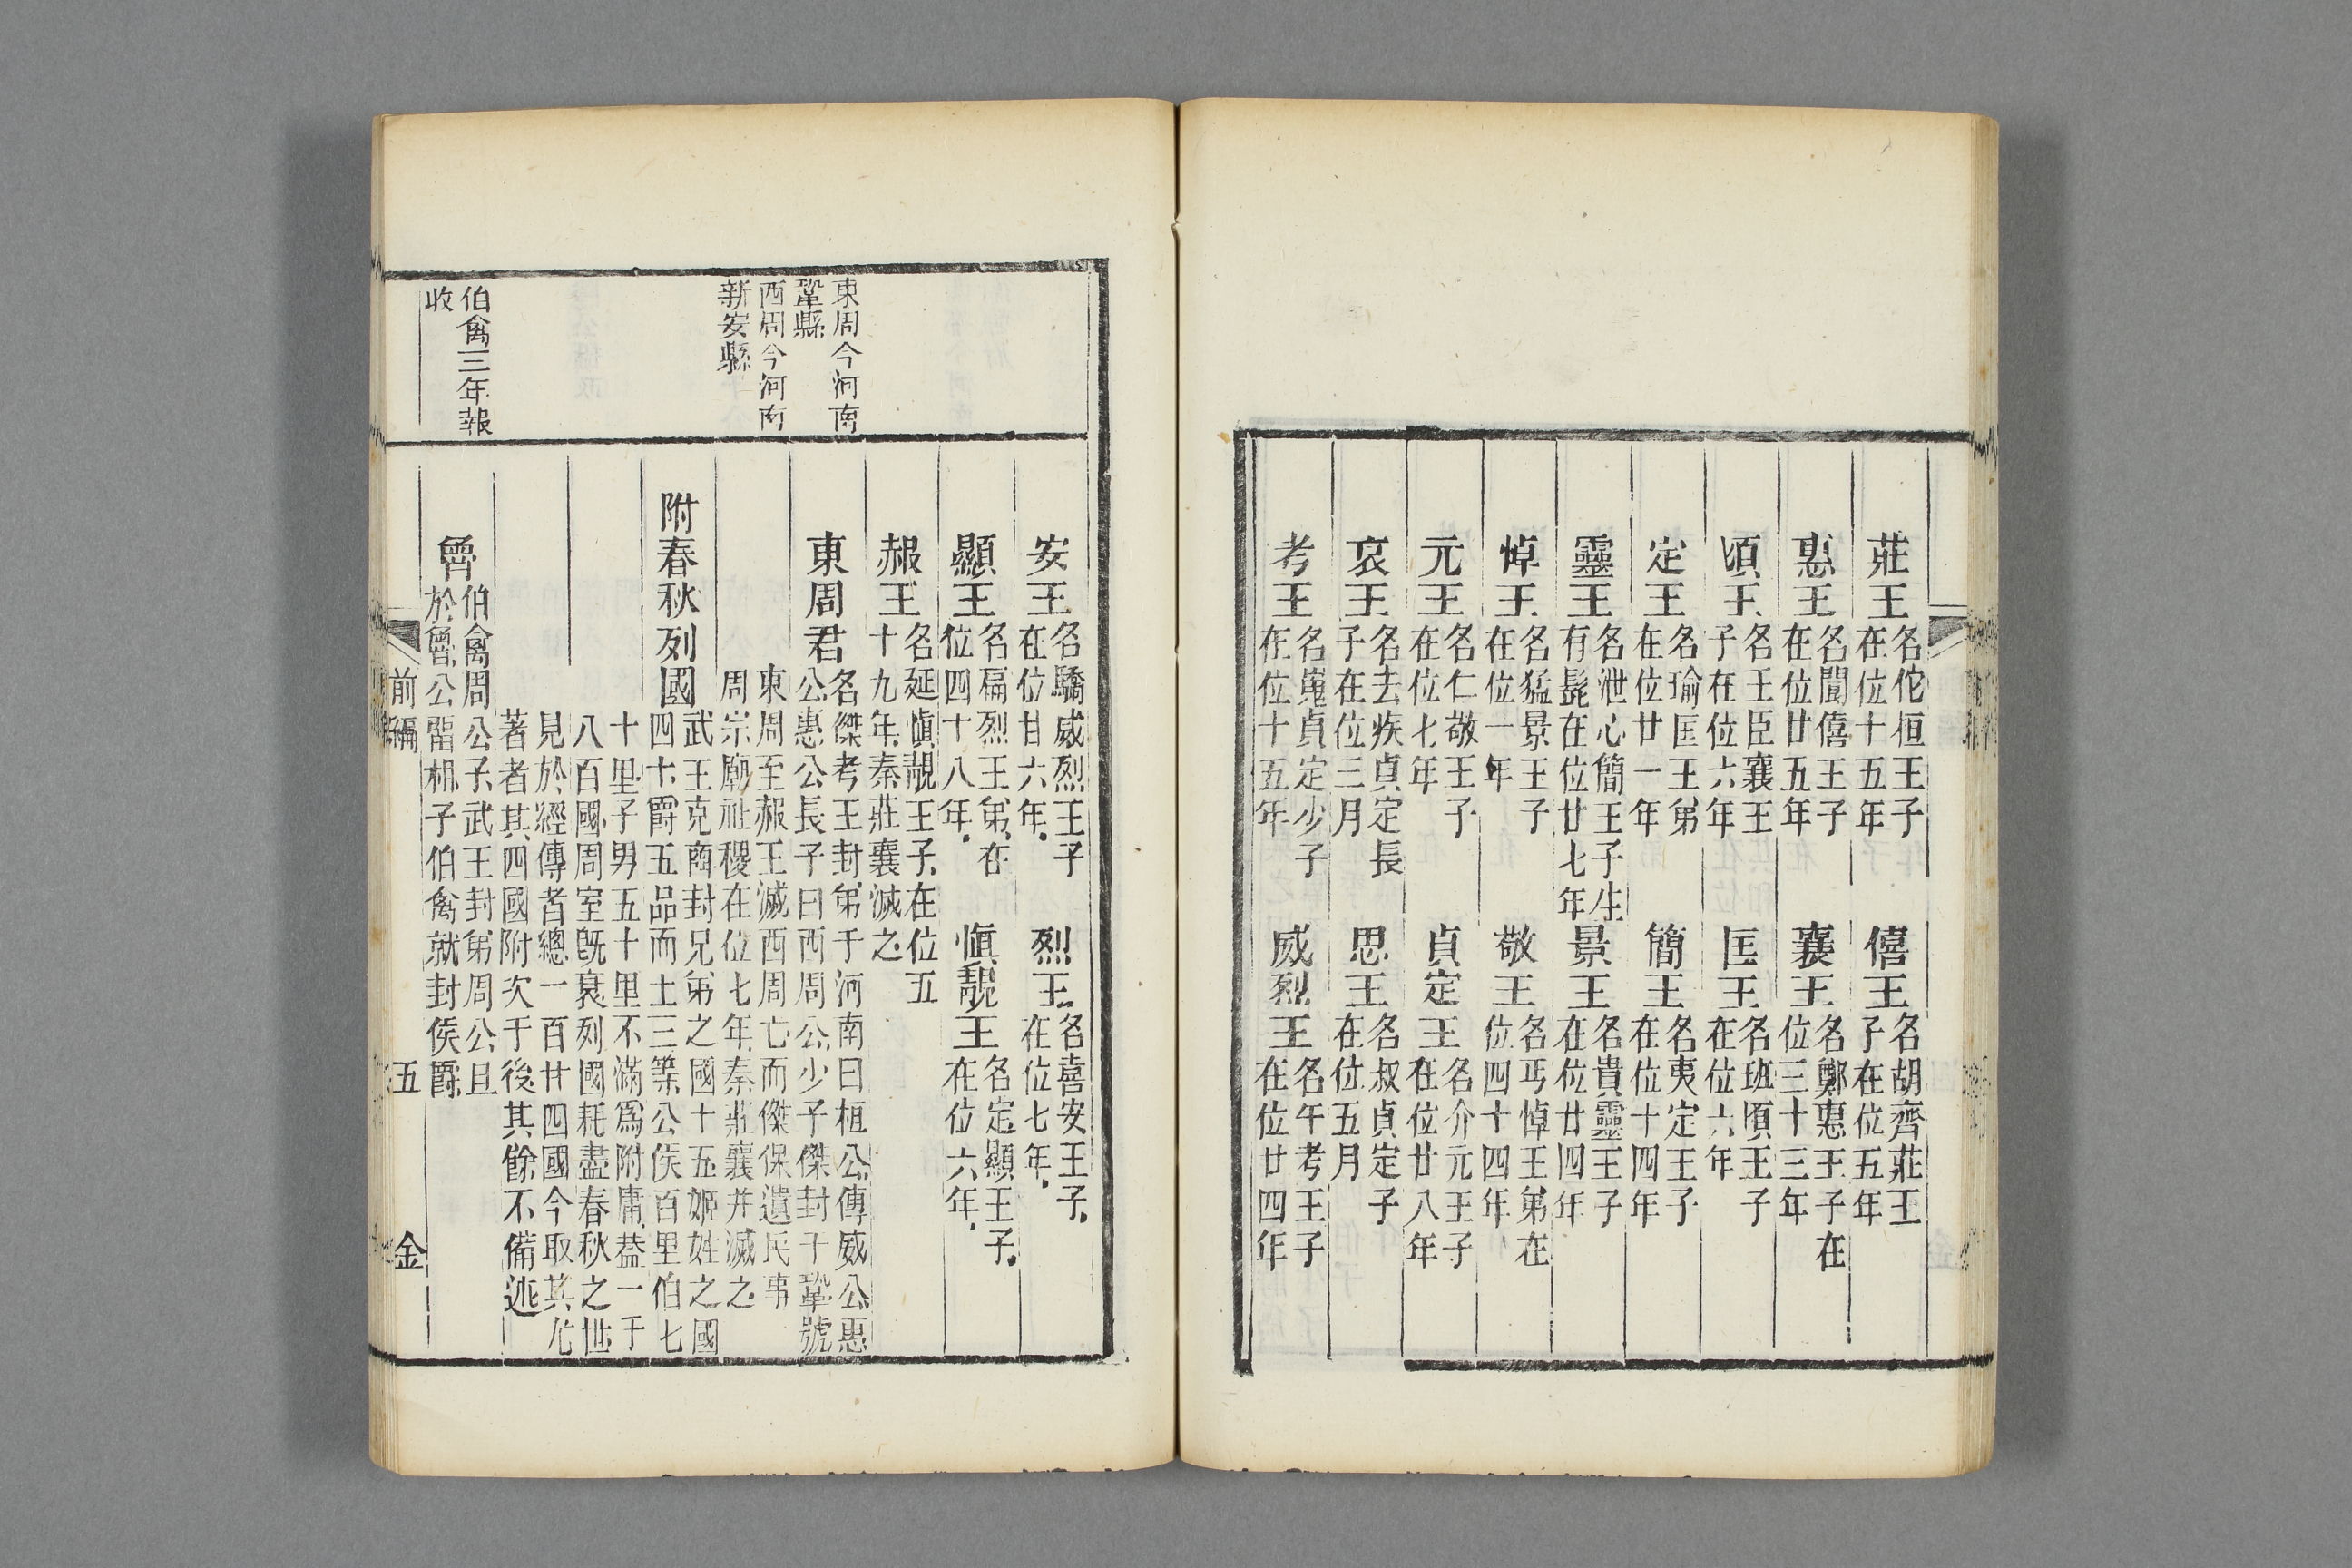 莊王 名佗桓王子
在位十五年
僖王 名胡齊莊王
子在位五年
惠王 名閬僖王子
在位廿五年
襄王 名鄭惠王子在
位三十三年
頃王 名王臣襄王
子在位六年
匡王 名班頃王子
在位六年
定王 名瑜匡王弟
在位廿一年
簡王 名夷定王子
在位十四年
靈王 名泄心簡王子生
有髭在位廿七年
景王 名貴靈王子
在位廿四年
悼王 名猛景王子
在位一年
敬王 名丐悼王弟在
位四十四年
元王 名仁敬王子
在位七年
貞定王 名介元王子
在位廿八年
哀王 名去疾貞定長
子在位三月
思王 名叔貞定子
在位五月
考王 名嵬貞定少子
在位十五年
威烈王 名午考王子
在位廿四年
安王 名驕威烈王子
在位廿六年
烈王 名喜安王子
在位七年
顯王 名扁烈王弟在
位四十八年
愼靚王 名定顯王子
在位六年
赧王 名延愼靚王子在位五
十九年秦莊襄滅之
東周今河南
鞏縣
西周今河南
新安縣
東周君 名傑考王封弟于河南曰桓公傳威公惠
公惠公長子曰西周公少子傑封于鞏號
東周至赧王滅西周亡而傑保遺民事
周宗廟社稷在位七年秦莊襄并滅之
附春秋列國 武王克商封兄弟之國十五姬姓之國
四十爵五品而土三等公侯百里伯七
十里子男五十里不滿爲附庸葢一千
八百國周室旣衰列國耗盡春秋之世
見於經傳者總一百廿四國今取其尤
著者其四國附次于後其餘不備述
伯禽三年報
收
魯 伯禽周公子武王封弟周公且
於魯公留相子伯禽就封侯爵
前編
五
金